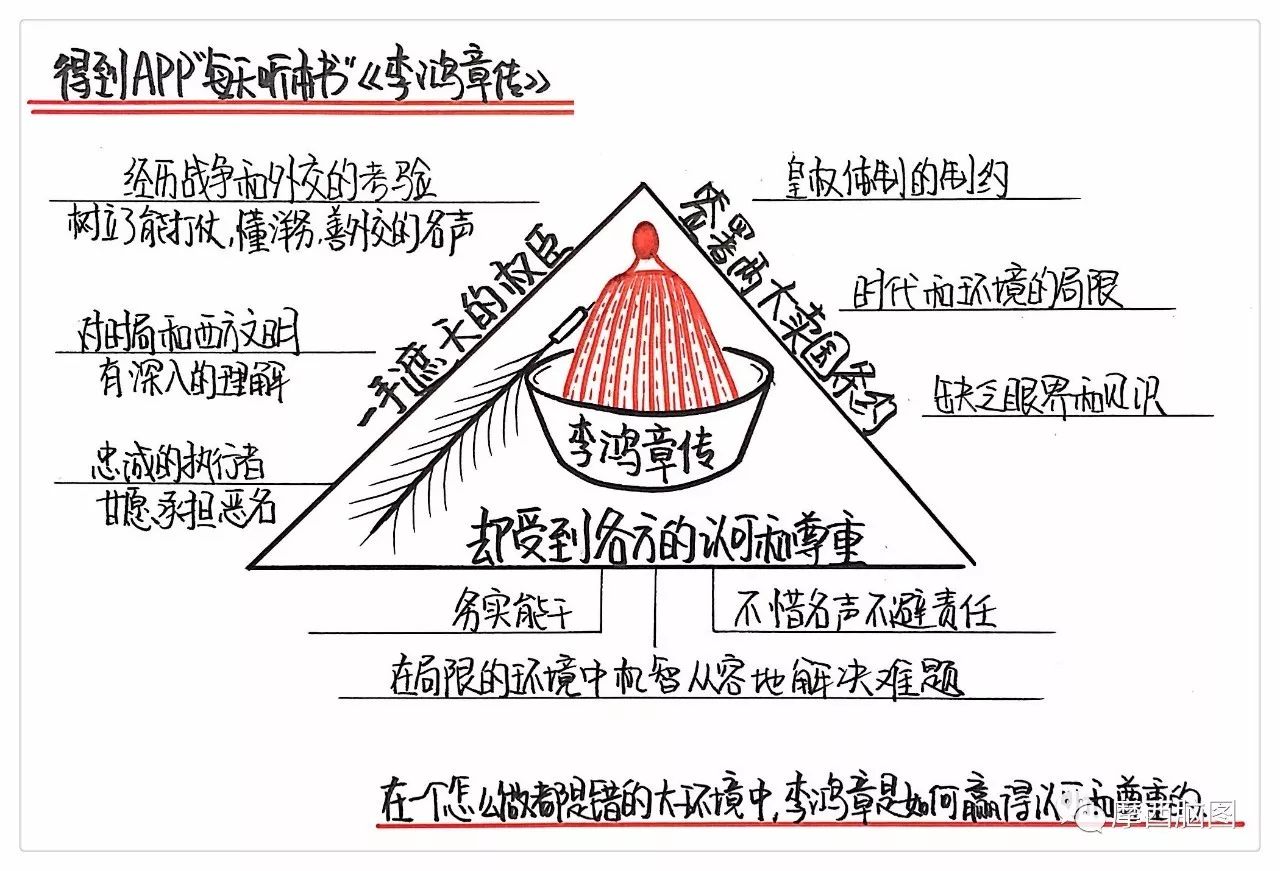 得到APP"每天听本书"《李鸿章传》
经历战争和外交的考验
树立了能打仗,懂洋务,善外交的名声
对时局和西方文明
有深入的理解
忠诚的执行者
甘愿承担恶名
一手遮天的权臣
签署两大卖国条约
皇权体制的制约
时代和环境的局限
缺乏眼界和见识
李鸿章传
却受到各方的认可和尊重
务实能干
不惜名声不避责任
在局限的环境中机智从容地解决难题
在一个怎么做都是错的大环境中,李鸿章是如何赢得认可和尊重的
摩西脑图